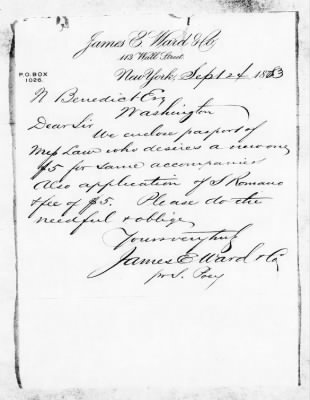 James E. Ward & Co,
113 Wall Street.
P.O. BOX
1026.
New York, Sept 24 1883
N Benedict Esq
Washington
Dear Sir
We enclose passport of
Miss Law who desires a new one
$5 for same accompanies
Also application of S Romano
& fee of $5. Please do the
needful & oblige
Yours very truly
James E Ward & Co
pr S. Poey